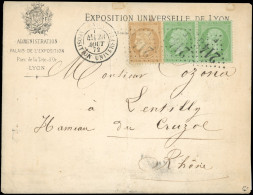 EXPOSITION UNIVERSELLE DE LYON
ADMINISTRATION
PALAIS DE L'EXPOSITION
Parc de la Tête-d'Or
LYON
AOUT
72
Monsieur
Lentilly
Hameau du Cruzol
Rhône